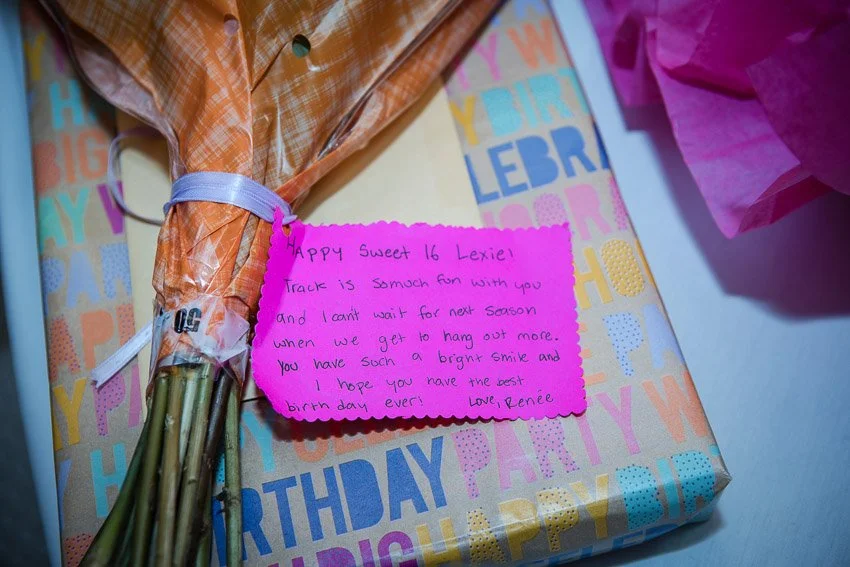 Happy Sweet 16 Lexie!
Track is somuch fun with you
and I can't wait for next season
when we get to hang out more.
You have such a bright smile and
I hope you have the best
birthday ever! Love, Renée
50
LEBRA
HO
PA
PARTY W
IRTHDAY
PARTY W
HAPPY BIR
BIG